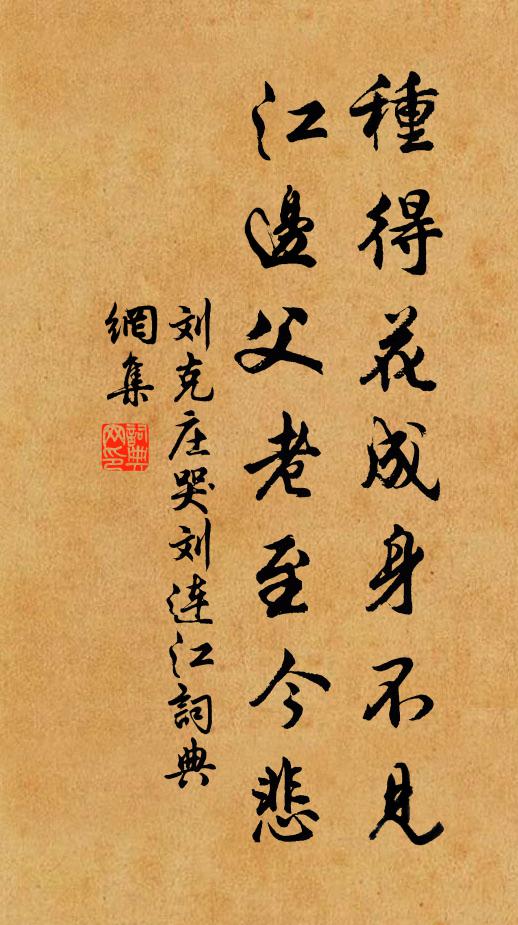 種得花成身不見
江邊父老至今悲
刘克庄哭刘连江詞典
網集
詞典网印